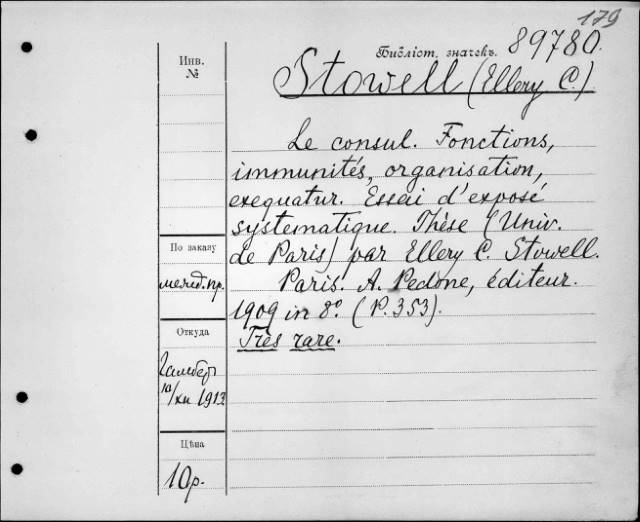 179
Библіот. значекъ. 89780.
Инв.
№
Stowell (Ellery C.)
Le consul. Fonctions,
immunités, organisation,
exequatur. Essai d'exposé
systematique. Thèse (Univ.
de Paris) par Ellery C. Stowell.
Paris. A. Pedone, éditeur.
1909 in 8º. (P. 353).
Très rare.
По заказу
межд. пр.
Откуда
10/XII 1913
Цѣна
10р.